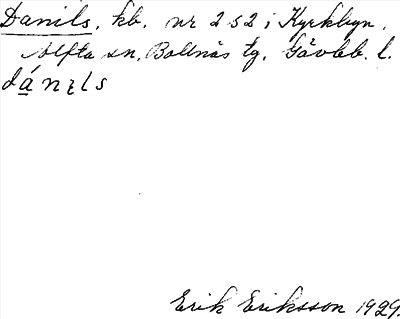 Danils, kb. nr 252 i Kyrkbyn,
Alfta sn, Bollnäs tg, Gävleb. l.
dánıls
Erik Eriksson 1929.